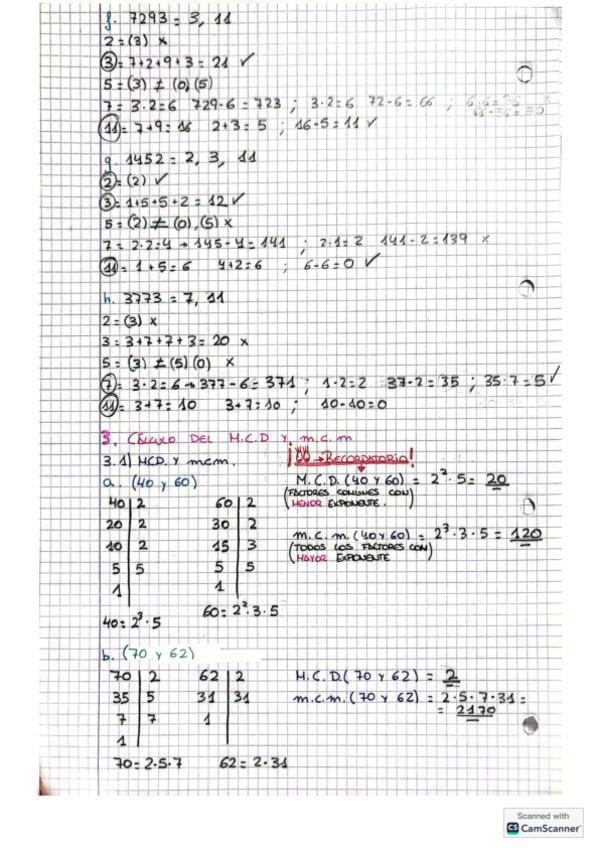 f. 7293 = 3, 11
2 = (3) x
3 = 7+2+9+3 = 21 ✓
5 = (3) ≠ (0,(5)
7 = 3·2=6 729-6 = 723 ; 3·2=6 72-6=66 ;
11 = 7+9 = 16 2+3 = 5 ; 16-5 = 11 ✓
g. 1452 = 2, 3, 11
2 = (2) ✓
3 = 1+5+5+2 = 12 ✓
5 = (2) ≠ (0),(5) x
7 = 2·2=4 → 145-4 = 141 ; 2·1=2 141-2=139 x
11 = 1+5=6 4+2=6 ; 6-6=0 ✓
h. 3773 = 7, 11
2 = (3) x
3 = 3+7+7+3 = 20 x
5 = (3) ≠ (5) (0) x
7 = 3·2=6 → 377-6 = 371 ; 1·2=2 37-2 = 35 ; 35·7=5 ✓
11 = 3+7=10 3+7=10 ; 10-10=0
3. CÁLCULO DEL M.C.D Y m.c.m
3.1) MCD. Y mcm. ¡→ RECORDATORIO!
a. (40 y 60) M.C.D. (40 Y 60) = 2²·5 = 20
(FACTORES COMUNES CON)
MENOR EXPONENTE.
40 | 2 60 | 2
20 | 2 30 | 2
10 | 2 15 | 3
5 | 5 5 | 5
1 1
m.c.m. (40 y 60) = 2³·3·5 = 120
(TODOS LOS FACTORES CON)
MAYOR EXPONENTE
40 = 2³·5 60 = 2²·3·5
b. (70 y 62)
70 | 2 62 | 2 M.C.D( 70 y 62) = 2
35 | 5 31 | 31 m.c.m. (70 y 62) = 2·5·7·31 =
7 | 7 1 = 2170
1
70 = 2·5·7 62 = 2·31
Scanned with
CS CamScanner